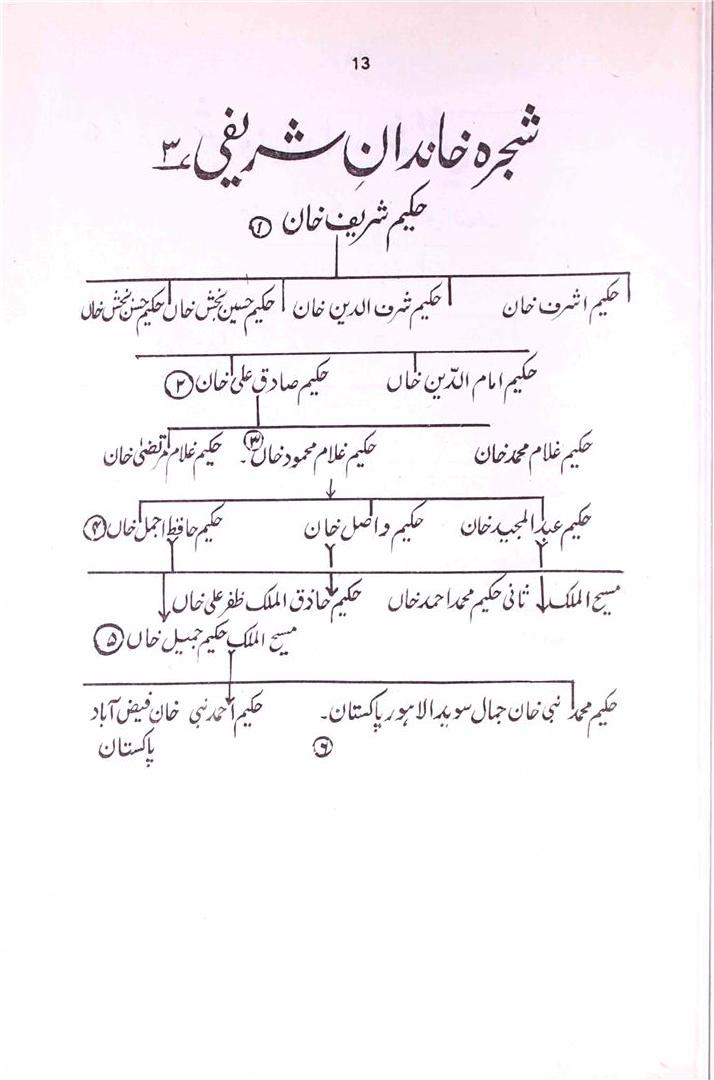 13
شجرہ خاندانِ شریفی ۳
حکیم شریف خان ۱
حکیم اشرف خان حکیم شرف الدین خان حکیم حسین بخش خاں حکیم حسن بخش خاں
حکیم امام الدّین خاں حکیم صادق علی خان ۲
حکیم غلام محمد خان حکیم غلام محمود خاں ۳۔ حکیم غلام مرتضیٰ خان
حکیم عبدالمجید خان حکیم واصل خان حکیم حافظ اجمل خاں ۴
مسیح الملک ثانی حکیم محمد احمد خاں حکیم حاذق الملک ظفر علی خاں
مسیح الملک حکیم جمیل خاں ۵
حکیم محمد نبی خان جمال سویدا لاہور پاکستان۔ حکیم احمد نبی خان فیض آباد
۶ پاکستان